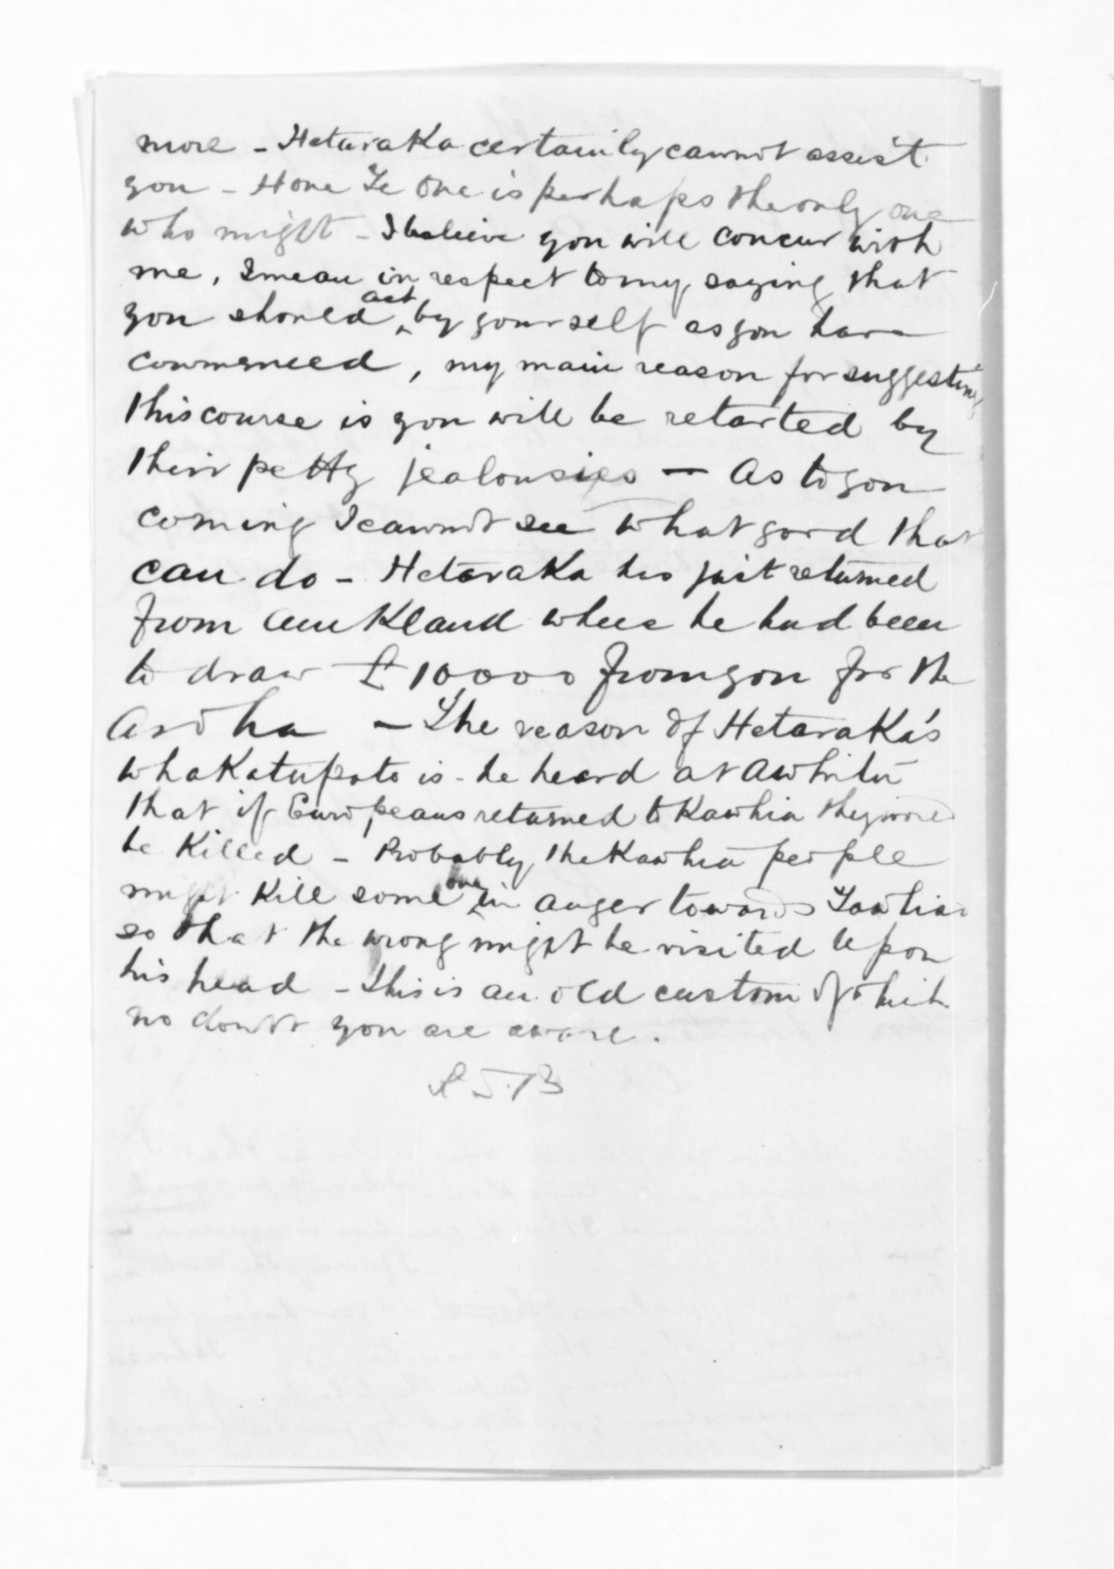 more - Hetaraka certainly cannot assist
you - Hone Te One is perhaps the only one
who might - I believe you will concur with
me, I mean in respect to my saying that
you should act by yourself as you have
commenced, my main reason for suggesting
this course is you will be retarted by
their petty jealousies - As to you
coming I cannot see what good that
can do - Hetaraka has just returned
from Auckland where he had been
to draw £10000 from you for the
Aroha - The reason of Hetaraka's
whakatupato is - he heard at Awhitu
that if Europeans returned to Kawhia they would
be killed - Probably the Kawhia people
might kill some one in anger towards Tawhiao
so that the wrong might be visited upon
his head - this is an old custom of which
no doubt you are aware.